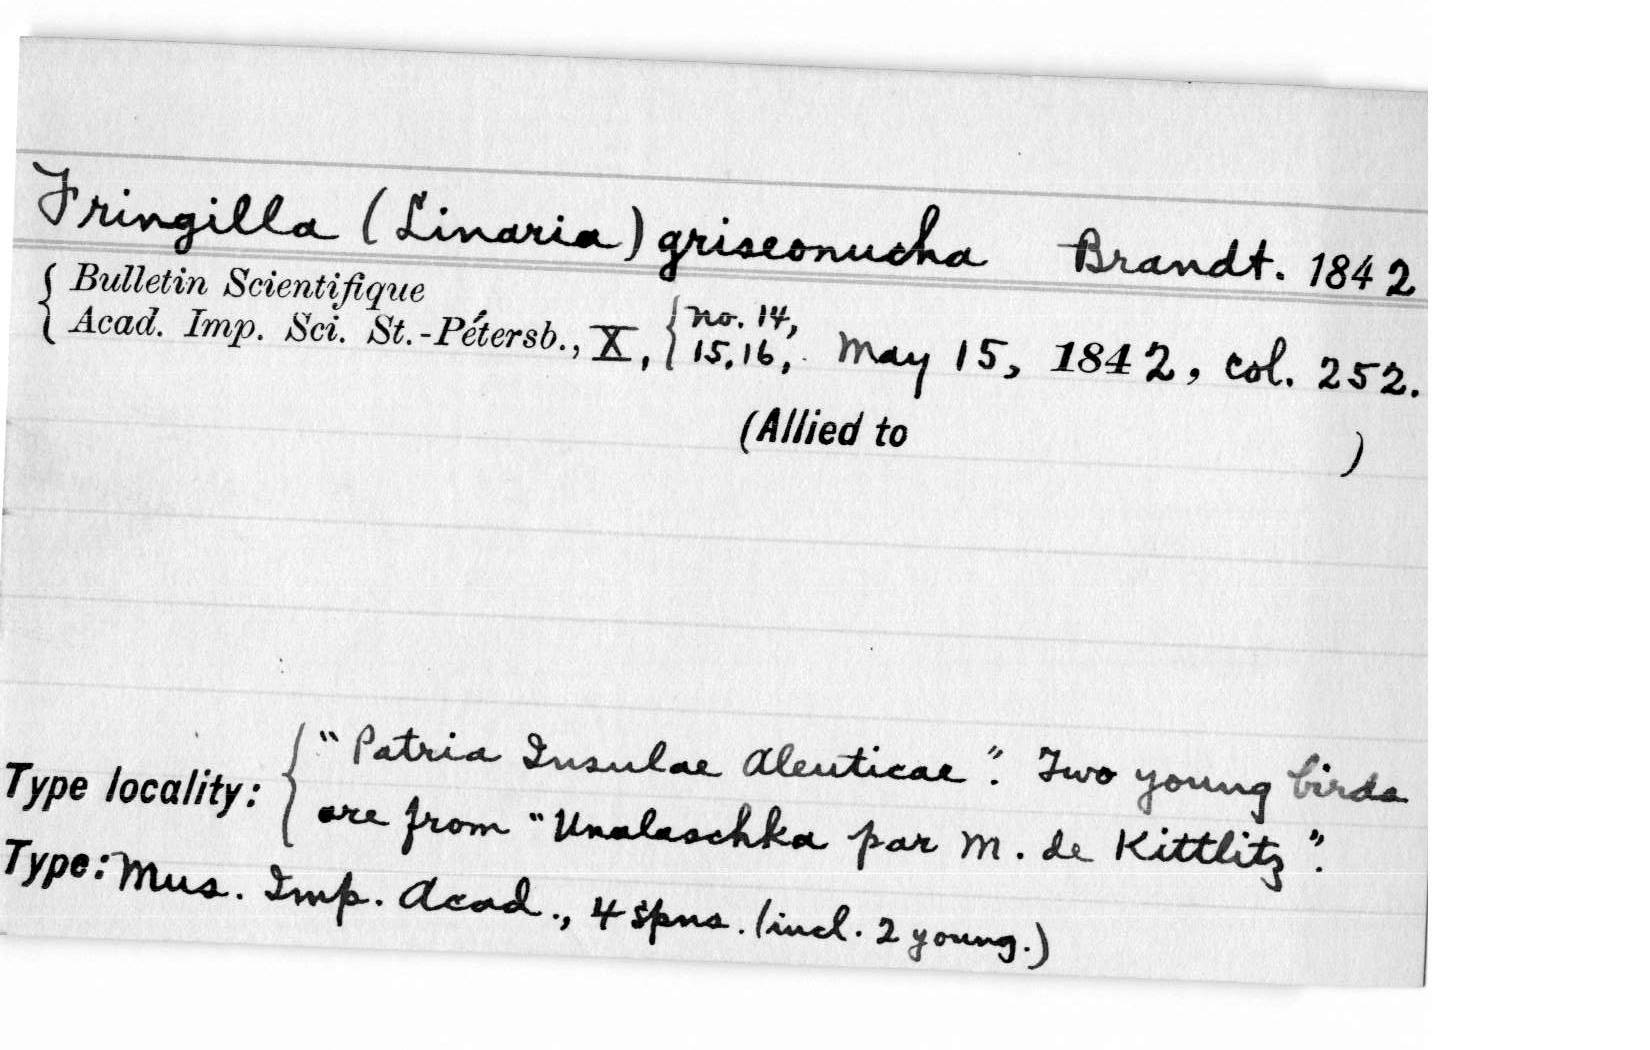 Fringilla (Linaria) griseonucha Brandt. 1842
Bulletin Scientifique
Acad. Imp. Sci. St.-Pétersb., X, no. 14, 15,16, May 15, 1842, col. 252.
(Allied to )
Type locality: "Patria Insulae Aleuticae". Two young birds
are from "Unalaschka par M. de Kittlitz".
Type: Mus. Imp. Acad., 4 spns. (incl. 2 young.)